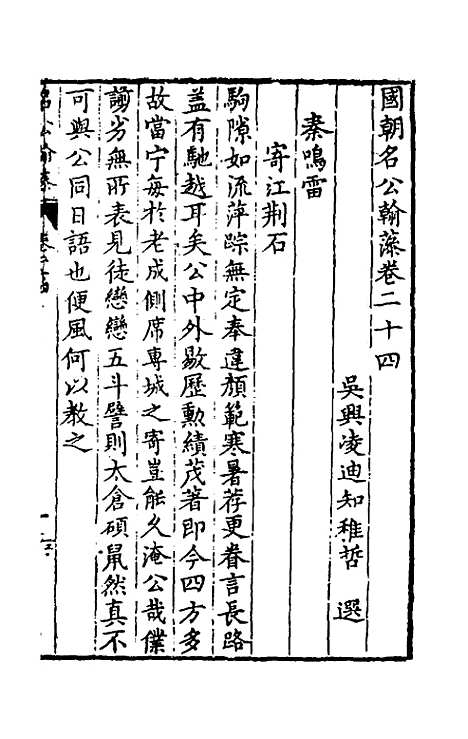 國朝名公翰藻卷二十四
吳興凌迪知稚哲 選
秦鳴雷
寄江荆石
駒隙如流萍踪無定奉違顏範寒暑荐更眷言長路
盖有馳越耳矣公中外敭歷勳績茂著即今四方多
故當宁每於老成側席專城之寄豈能久淹公哉僕
謭劣無所表見徒戀戀五斗譬則太倉碩鼠然真不
可與公同日語也便風何以教之